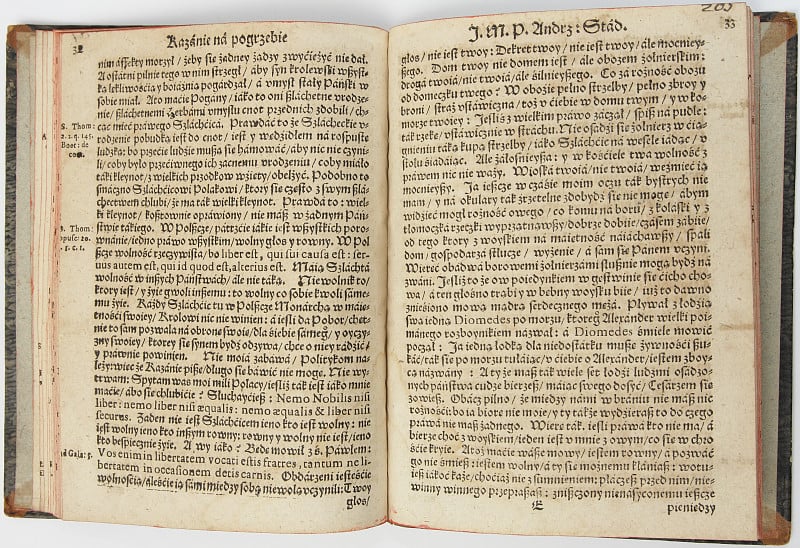 32
Kazánie ná pogrzebie
nim affekty morzył / żeby sie żadney żadzy zwyćiężyć nie dał.
A ostátni pilnie tego w nim strzegł / áby syn krolewski wszyst-
ką lekliwośćią y boiáznią pogárdzał / á vmysł stały Páński w
sobie miał. Ato máćie Pogány / iáko te oni szláchetne wrodze-
nie / szláchetnymi Herbámi vmysłu cnot przednich zdobili / chcą-
cąc mieć práwego Szláchćicá. Prawdáć to że Szláchećkie v-
rodzenie pobudka iest do cnot / iest y wędźidłem ná rospustę
ludzką: bo przećię ludźie muszą sie hámowáć / áby nic nie czyni-
li / coby było przećiwnego ich zacnemu vrodzeniu / coby miáło
táki kleynot / z wielkich przodkow wźięty / obelżyć. Podobno to
smáczno Szláchćicowi Polákowi / ktory sie często z swym szlá-
chectwem chlubi / że ma ták wielki kleynot. Prawdá to: wiel-
ki kleynot / kosztownie opráwiony / nie mász w żadnym Páń-
stwie tákiego. W Polszcze / pátrzćie iákie iest wszystkich poro-
wnánie / iedno práwo wszytkim / wolny głos y rowny. W Pol-
szcze wolność rzeczywista / bo liber est, qui sui causa est: ser-
uus autem est, qui id quod est, alterius est. Máią Szláchtá
wolność w inszych Páństwách / ále nie táką. Niewolnik to /
ktory iest / y żyie gwoli inszemu: to wolny co sobie kwoli same-
mu żyie. Káżdy Szláchćic tu w Polszcze Monárchá w máie-
tnośći swoiey / Krolowi nic nie winien: á iesli da Pobor / chę-
tnie to sam pozwala ná obronę swoię / dla śiebie sámego / y oyczy-
zny swoiey / ktorey sie synem bydź odzywa / chce o niey rádźić /
y práwnie powinien. Nie moiá zabáwá / Politykom na-
leży: więc że Kazánie piszę / długo sie báwić nie mogę. Nie wy-
trwam: Spytam was moi mili Polacy / iesliż ták iest iáko mnie
máćie / ábo sie chlubićie? Słuchayćiesz: Nemo Nobilis nisi
liber: nemo liber nisi æqualis: nemo æqualis & liber nisi
securus. Żaden nie iest Szláchćicem ieno kto iest wolny: nie
iest wolny ieno kto inszym rowny: rowny y wolny nie iest / ieno
kto bespiecznie żyie. A wy iáko? Będę mowił z ś. Páwłem:
Vos enim in libertatem vocati estis fratres, tantum ne li-
bertatem in occasionem detis carnis. Obdárzeni iesteśće
wolnośćią / áleśćie ią sámi między sobą niewolą vczynili: Twoy
głos /
S. Thom:
2. 2. q. 145.
Boet: de
con.
S. Thom:
opusc: 20.
ad Gala: 5.
203
J. M. P. Andrz: Stád.
33
głos / nie iest twoy: Dekret twoy / nie iest twoy / ále mocniey-
szego. Dom twoy nie domem iest / ále obozem żołnierskim:
drogá twoiá / nie twoiá / ále śilnieyszego. Co zá rożność obozu
od domeczku twego? W oboźie pełno strzelby / pełno zbroy y
broni / straż vstáwiczna / toż v ćiebie w domu twym / y w ko-
morze twoiey: Jesliś z wielkim práwo záczął / śpisz ná pudle:
ták rzekę / vstáwicznie w stráchu. Nie osádźi sie żołnierz w ćią-
gnieniu táką kupą strzelby / iáko Szláchćic ná wesele iádąc / v
stołu śiadáiąc. Ale żáłosnieysza: y w kośćiele twá wolność z
práwem nic nie waży. Wioská twoiá / nie twoiá / weźmie ią
mocnieyszy. Ja ieszcze w czáśie moim oczu ták bystrych nie
mam / y ná okulary ták źrzetelne zdobydź sie nie mogę / ábym
widźieć mogł rożność owego / co komu ná boru / z kolaski y z
tłomoczká rzeczy wyprzątnąwszy / dobrze dobiie / czásem zábiie /
od tego ktory z woyskiem ná máiętność náiáchawszy / spali
dom / gospodarzá stłucze / wyżenie / á sam sie Pánem vczyni.
Więrę obádwá borowemi żołnierzámi słusznie mogą bydź ná-
zwáni. Jesliż to że ow poiedynkiem w gęstwinie sie ćicho cho-
wa / á ten głosno trąby y bębny woysku biie / iuż to dawno
znieśiono mową mądrą serdecznego mężá. Pływał z łodźią
swą iedną Diomedes po morzu / ktorego Alexánder wielki poi-
mánego rozboynikiem názwał: á Diomedes śmiele mowić
począł: Ja iedną łodką dla niedostátku muszę żywnośći szu-
káć / ták sie po morzu tułáiąc / v ćiebie o Alexánder / iestem zboy-
cą názwány: A ty że masz ták wiele set łodźi ludźmi osádzo-
nych / páństwá cudze bierzesz / máiąc swego dosyć / Cesárzem sie
zowiesz. Obacz pilno / że między námi w brániu nie mász nic
rożnośći: bo ia biorę nie moie / y ty tákże wydźierasz to do czego
práwá nie masz żadnego. Więrę ták. iesli práwá kto nie ma / á
bierze choć z woyskiem / ieden iest v mnie z owym / co sie w chro-
śćie kryie. Atoż macie wásze mowy / iestem rowny / á pozwáć
go nie śmiesz: iestem wolny / á ty sie możnemu kłániasz: wotu-
iesz iákoć każe / choćiaż nie z sumnieniem: płáczesz przed nim / nie-
winny winnego przepraszasz: zniszczony nienásyconemu ieszcze
E
pieniędzy